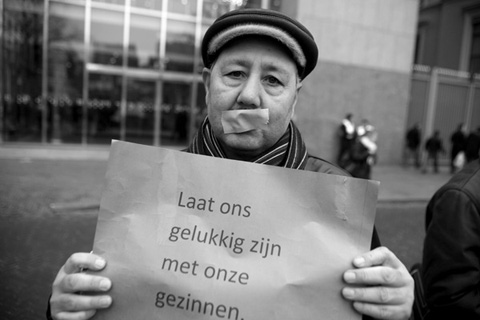 Laat ons
gelukkig zijn
met onze
gezinnen.